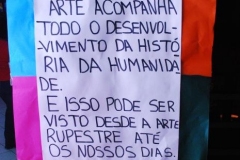 ARTE ACOMPANHA
TODO O DESENVOL-
VIMENTO DA HISTÓ
RIA DA HUMANIDA
DE.
E ISSO PODE SER
VISTO DESDE A ARTE
RUPESTRE ATÉ
OS NOSSOS DIAS.